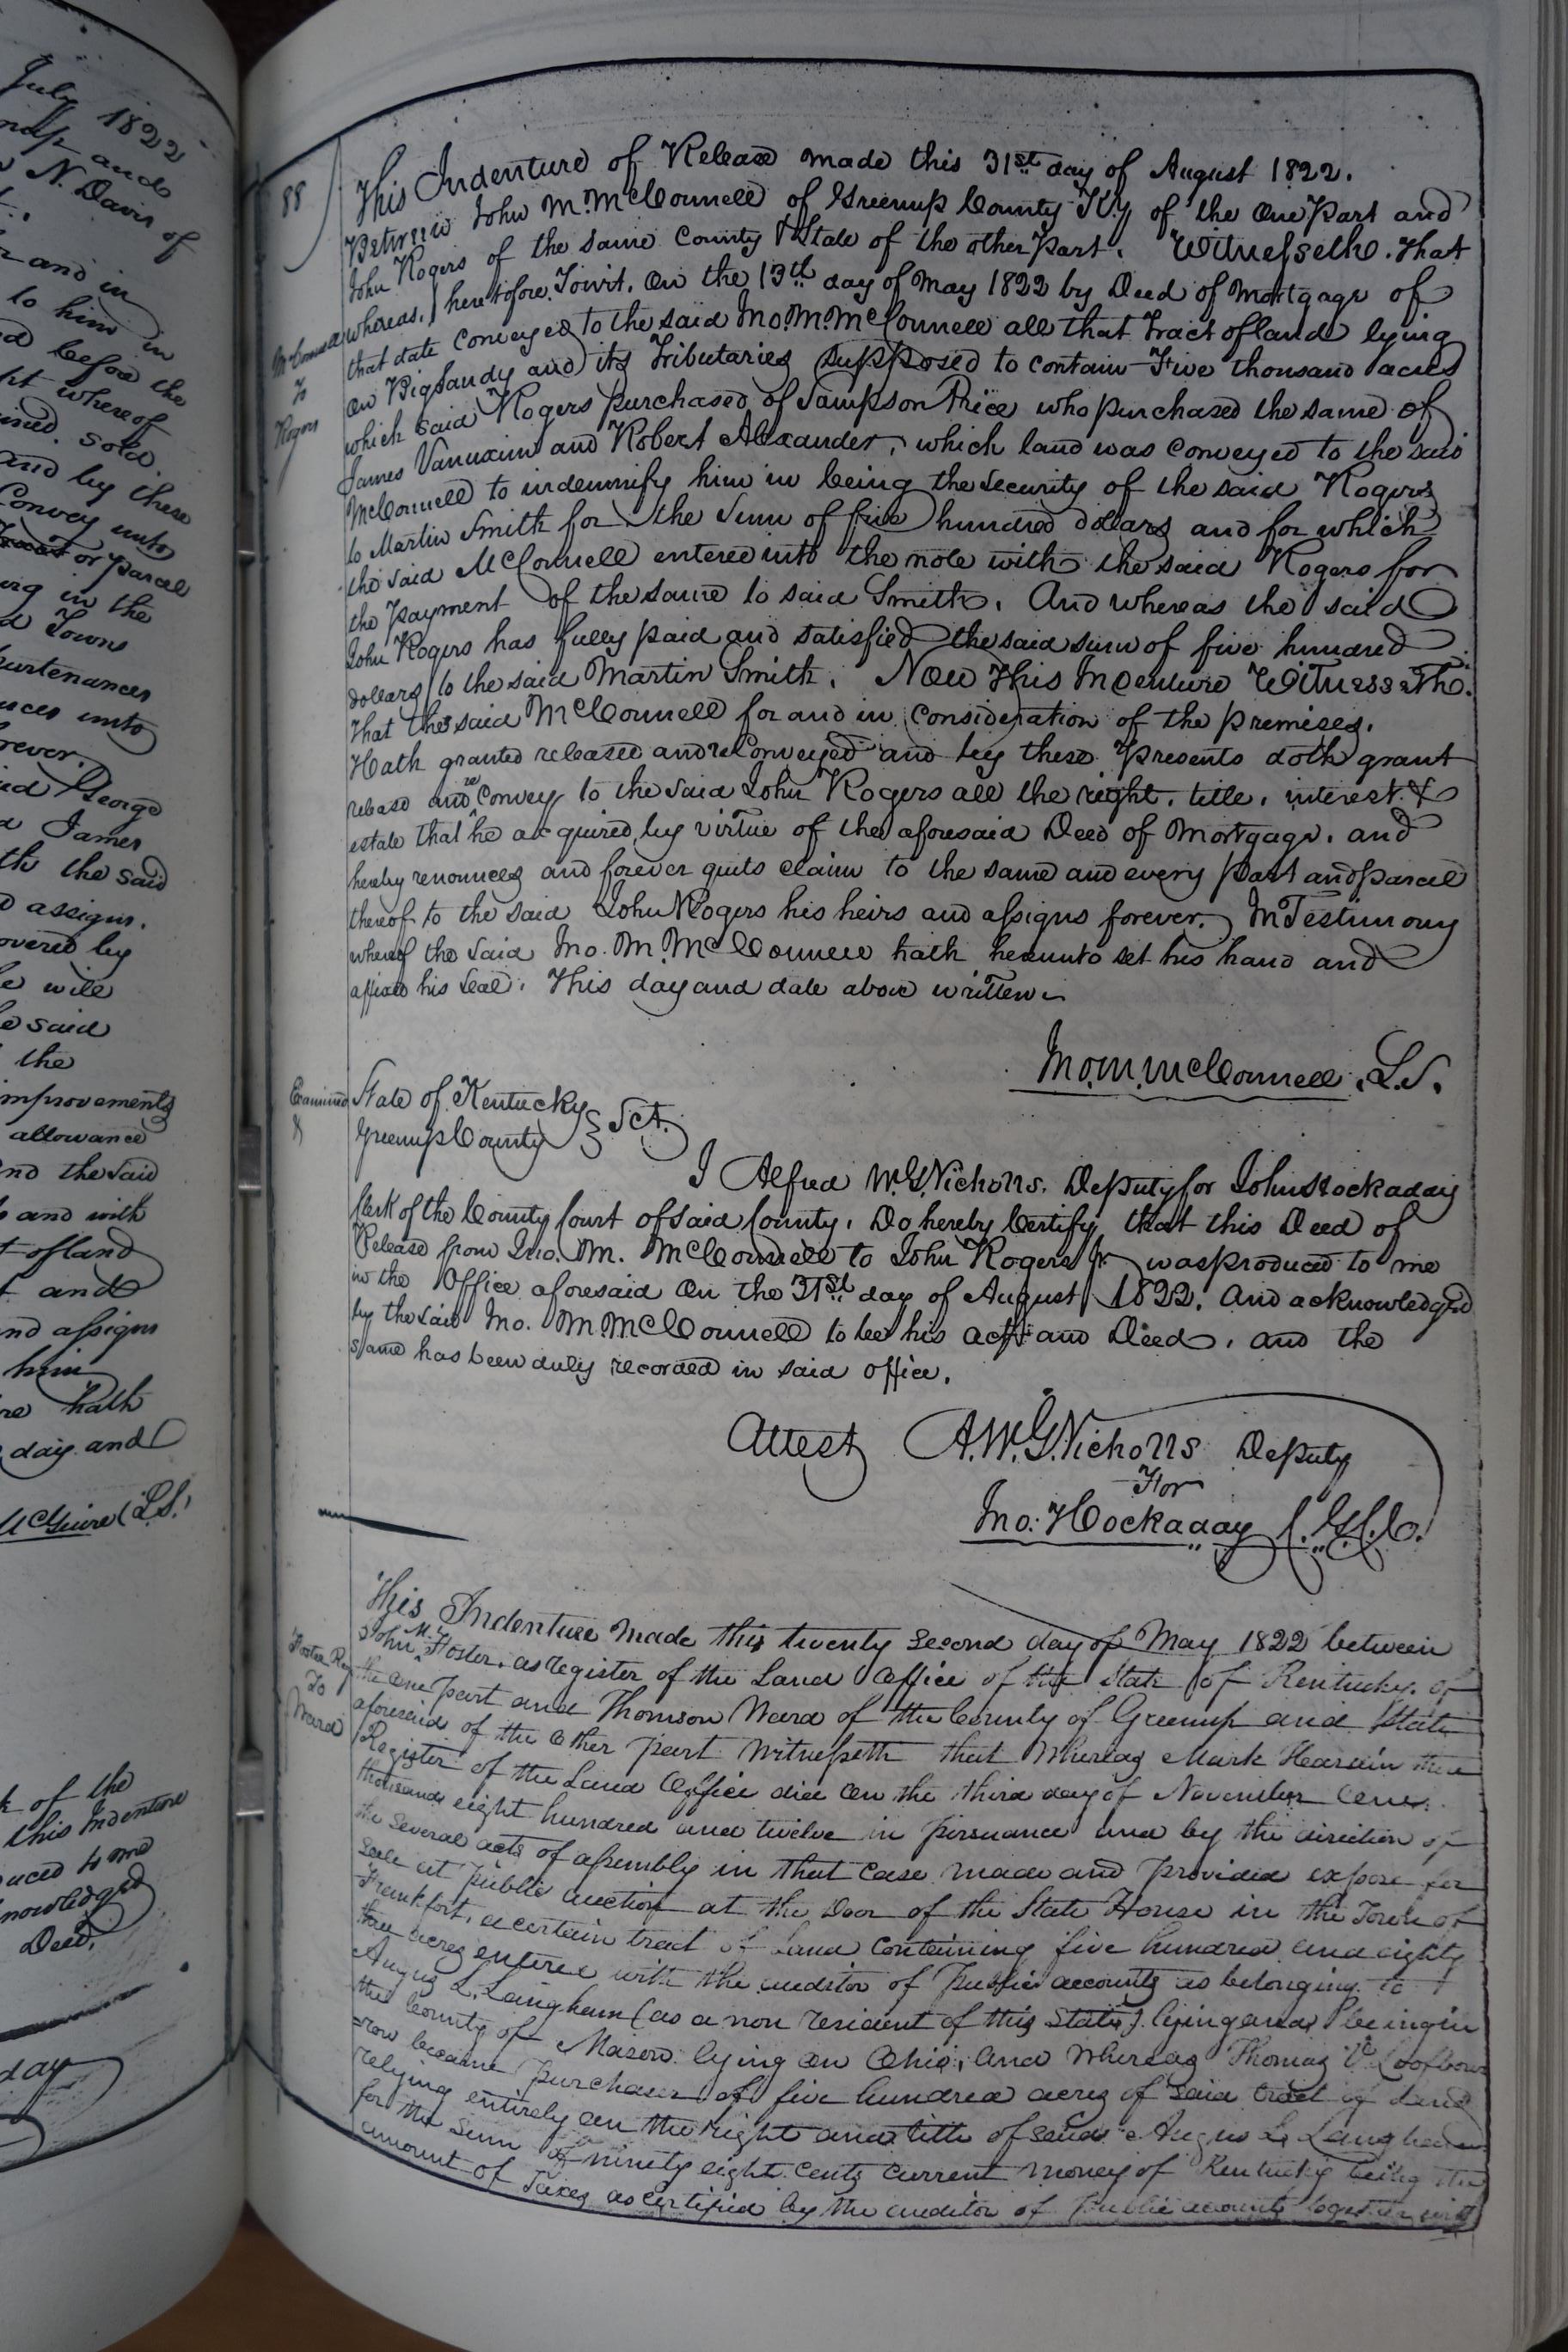 July 1822
and
N. Davis of
and in
to him in
before the
whereof
sold.
and by these
Convey unto
or parcel
in the
Towns
purtenances
unto
George
James
th the said
assigns.
overed by
will
said
the
improvements
allowance
and the said
and with
of land
and
and assigns
him
hath
day and
McGuire (L.S.)
of the
this Indenture
me
Deed.
day
88
This Indenture of Release made this 31st day of August 1822.
Between John M. McConnell of Greenup County Ky of the one Part and
John Rogers of the same County & State of the other Part. Witnesseth. That
whereas, heretofore. Towit. On the 13th day of May 1822 by Deed of Mortgage of
that date conveyed to the said Jno. M. McConnell all that Tract of land lying
on Big Sandy and its Tributaries supposed to contain Five thousand acres
which said Rogers purchased of Sampson Price who purchased the same of
James Vanuxim and Robert Alexander, which land was conveyed to the said
McConnell to indemnify him in being the security of the said Rogers
to Martin Smith for the Sum of five hundred dollars and for which
the said McConnell entered into the note with the said Rogers for
the Payment of the same to said Smith. And whereas the said
John Rogers has fully paid and satisfied the said sum of five hundred
dollars to the said Martin Smith. Now This Indenture Witnesseth.
That the said McConnell for and in consideration of the premises.
Hath granted released and reConveyed and by these Presents doth grant
release and re Convey to the said John Rogers all the right, title, interest &
estate that he acquired by virtue of the aforesaid Deed of Mortgage. and
hereby renounces and forever quits claim to the same and every Part and parcel
thereof to the said John Rogers his heirs and assigns forever. In Testimony
whereof the said Jno. M. McConnell hath hereunto set his hand and
affixed his Seal. This day and date above written
McConnell
To
Rogers
Jno. M. McConnell. L.S.
Examined
State of Kentucky } Sct.
Greenup County
I Alfred W. G. Nicholls. Deputy for John Hockaday
Clerk of the County Court of said County. Do hereby Certify that this Deed of
Release from Jno. M. McConnell to John Rogers Jr was produced to me
in the Office aforesaid On the 31st day of August 1822. And acknowledged
by the said Jno. M McConnell to be his act and Deed, and the
same has been duly recorded in said office.
Attest A. W. G. Nicholls Deputy
For
Jno. Hockaday C.G.C.C.
Foster Reg
To
Ward
This Indenture made this twenty second day of May 1822 between
John M. Foster, as register of the Land Office of the State of Kentucky. of
the one part and Thomson Ward of the County of Greenup and State
aforesaid of the other part Witnesseth that Whereas Mark Hardin then
Register of the Land Office did on the third day of November one
thousand eight hundred and twelve in pursuance and by the direction of
the several acts of assembly in that case made and provided expose for
sale at public auction at the Door of the State House in the Town of
Frankfort, a certain tract of Land containing five hundred and eighty
three acres entered with the auditor of Public accounts as belonging to
Angus L. Langham (as a non resident of this State) lying and being in
the County of Mason lying on Ohio, and Whereas Thomas V. Loofbour
=row became purchaser of five hundred acres of said tract of Land
relying entirely on the right and title of said Angus L. Langham
for the Sum of ninety eight cents current money of Kentucky being the
amount of Taxes as certified by the auditor of Public accounts together with